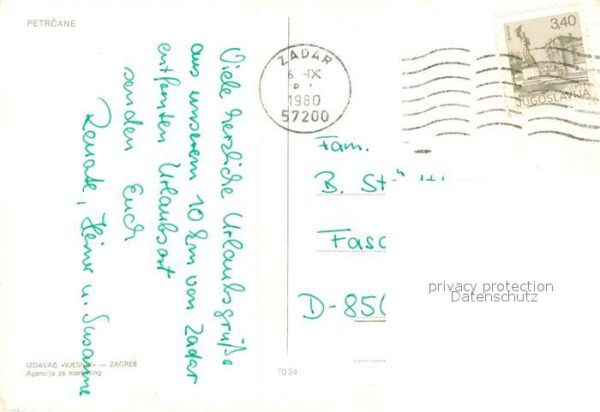 PETRČANE
Viele herzliche Urlaubsgrüße
aus unserem 10 km von Zadar
entfernten Urlaubsort
senden Euch
Renate, Heiner u. Susanne
IZDAVAČ »VJESNIK« — ZAGREB
Agencija za marketing
7034
ZADAR
6-IX
1980
57200
3,40
JUGOSLAVIJA
Fam.
B.
D-850
privacy protection
Datenschutz